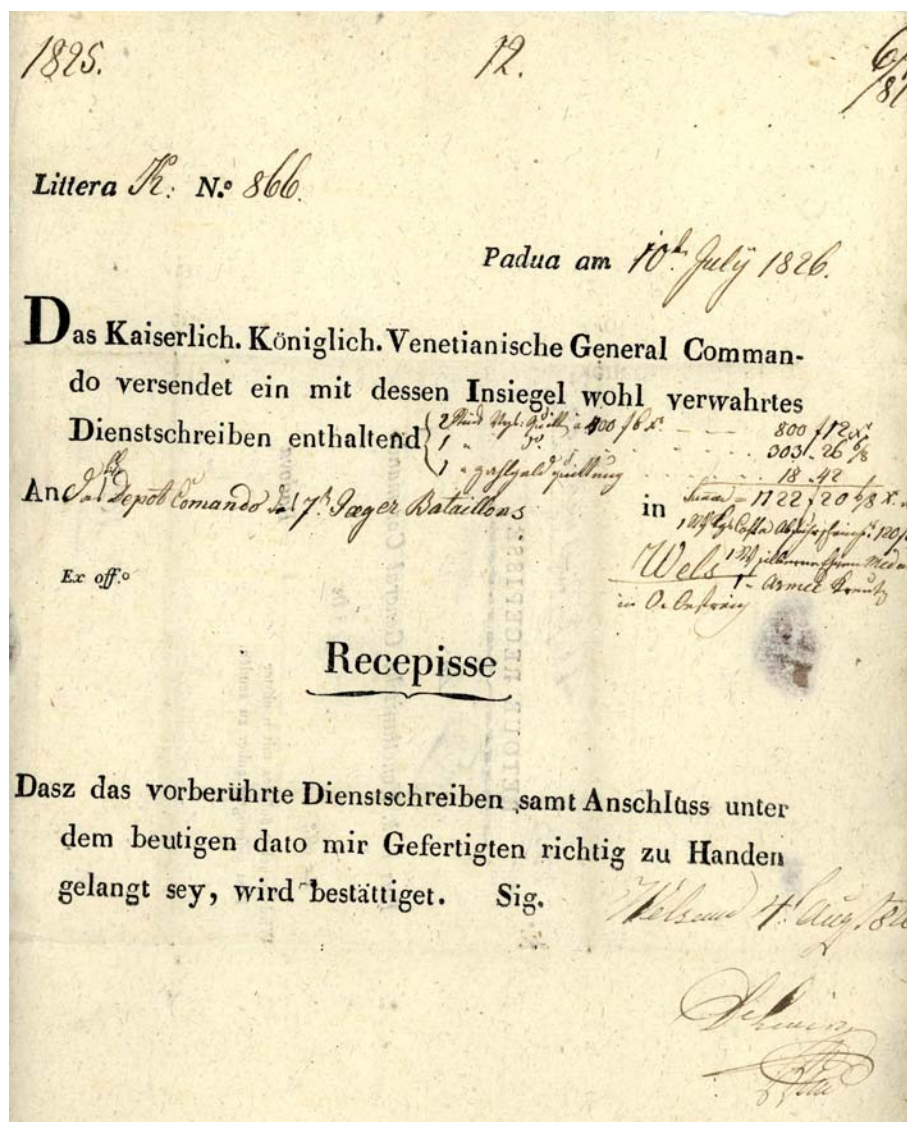 1825. 12. 6/8
Littera K: N.º 866.
Padua am 10t. July 1826.
Das Kaiserlich. Königlich. Venetianische General Comman-
do versendet ein mit dessen Insiegel wohl verwahrtes
Dienstschreiben enthaltend { 2 à 400 f 6 x. — — 800 f 12 x
1 " . . . 303 . 26 6/8
1 " Zahlgeld Quittung . . . 18 . 42
An Das Depot Comando des 7t. Jaeger Bataillons in 1122 f 20 6/8 x.
1 120 f
Wels 1 silberne Ehren Meda
Ex off.º 1 " Armee Kreutz
in O. Oestreich
Recepisse
Dasz das vorberührte Dienstschreiben samt Anschluss unter
dem beutigen dato mir Gefertigten richtig zu Handen
gelangt sey, wird bestättiget. Sig. Wels am 4t. Aug. 182